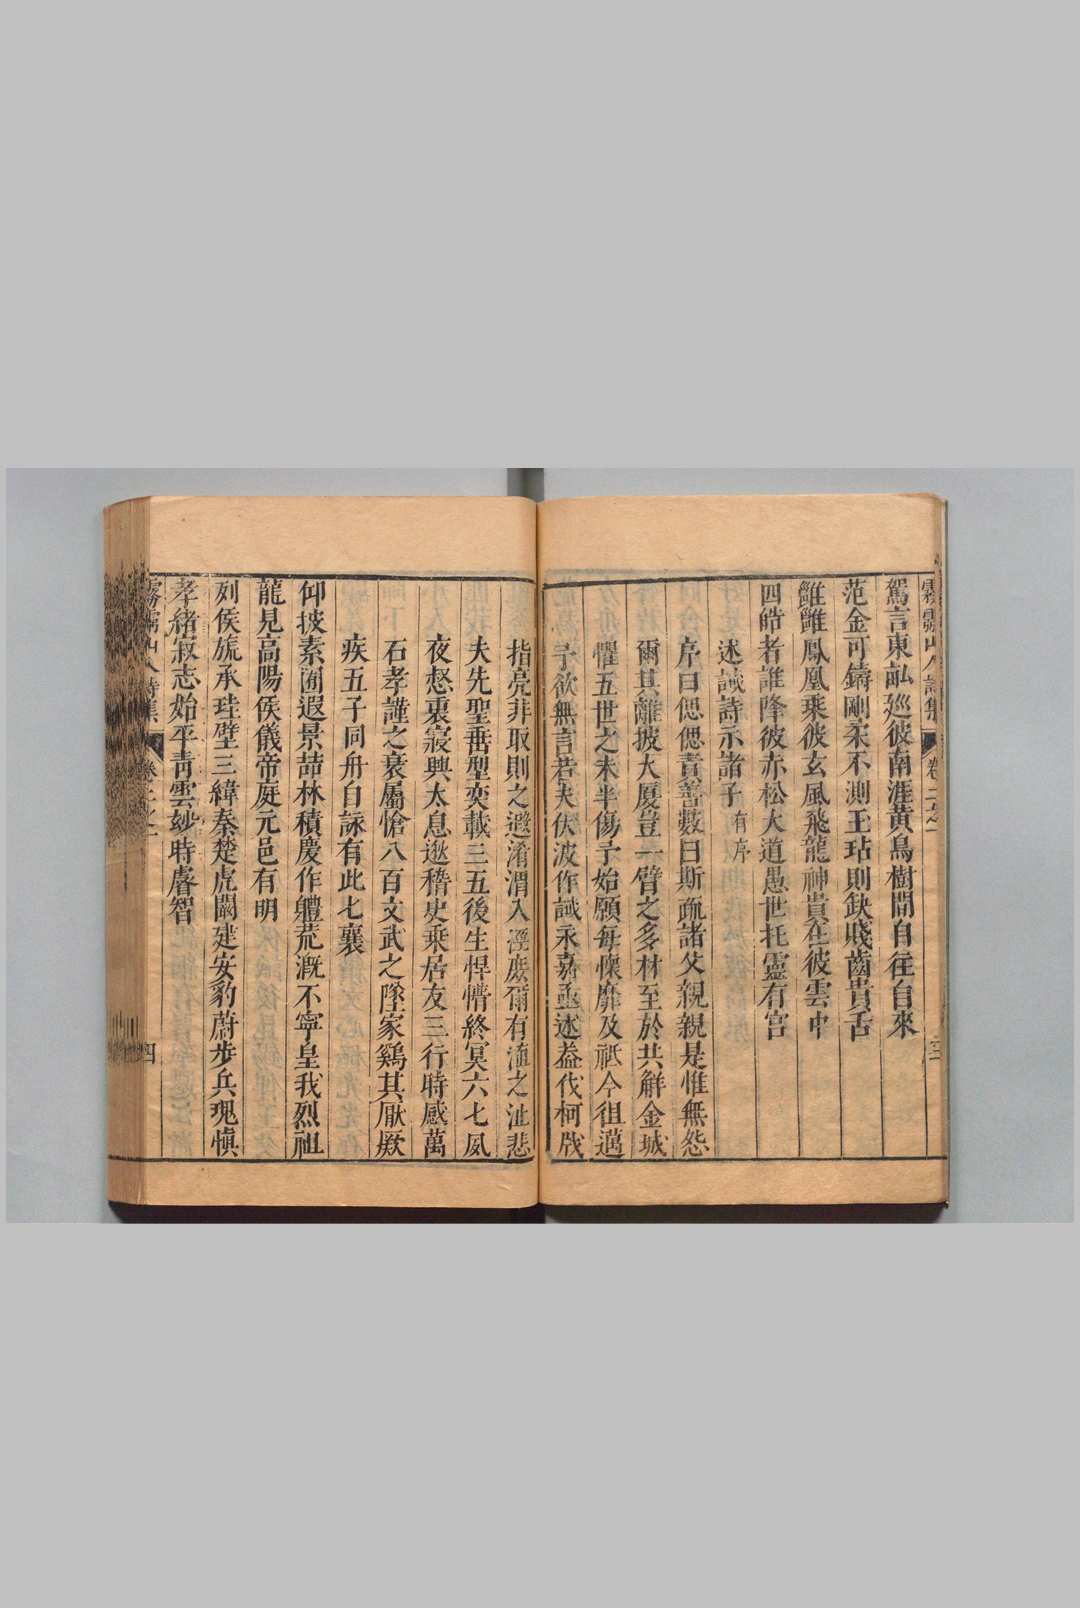 駕言東畝巡彼南涯黃鳥樹間自往自來
范金可鑄剛柔不測玉玷則缺賤齒貴舌
雝雝鳳凰乘彼玄風飛龍神貴在彼雲中
四皓者誰降彼赤松大道愚世托靈有宮
述誡詩示諸子有序
序曰偲偲責善數曰斯疏諸父親親是惟無怨
爾其離披大厦豈一臂之多材至於共觧金城
懼五世之未半傷予始願每懷靡及祗今徂邁
予欲無言若夫伏波作誡永嘉亟述葢伐柯戕
指亮非取則之避淆渭入涇庶爾有湎之沚悲
夫先聖垂型奕載三五後生悍懵終冥六七夙
夜惄衷寢興太息邈稽史乘居友三行時感萬
石孝謹之衰屬愴八百文武之墜家鷄其厭厥
疾五子同舟自詠有此七襄
仰披素圃遐景喆林積慶作軆荒溉不寧皇我烈祖
龍見高陽侯儀帝庭元邑有明
列侯旒承珪璧三緯秦楚虎關建安豹蔚步兵瑰愼
孝緒寂志始平青雲妙時睿智
山人詩集 卷二之一 四